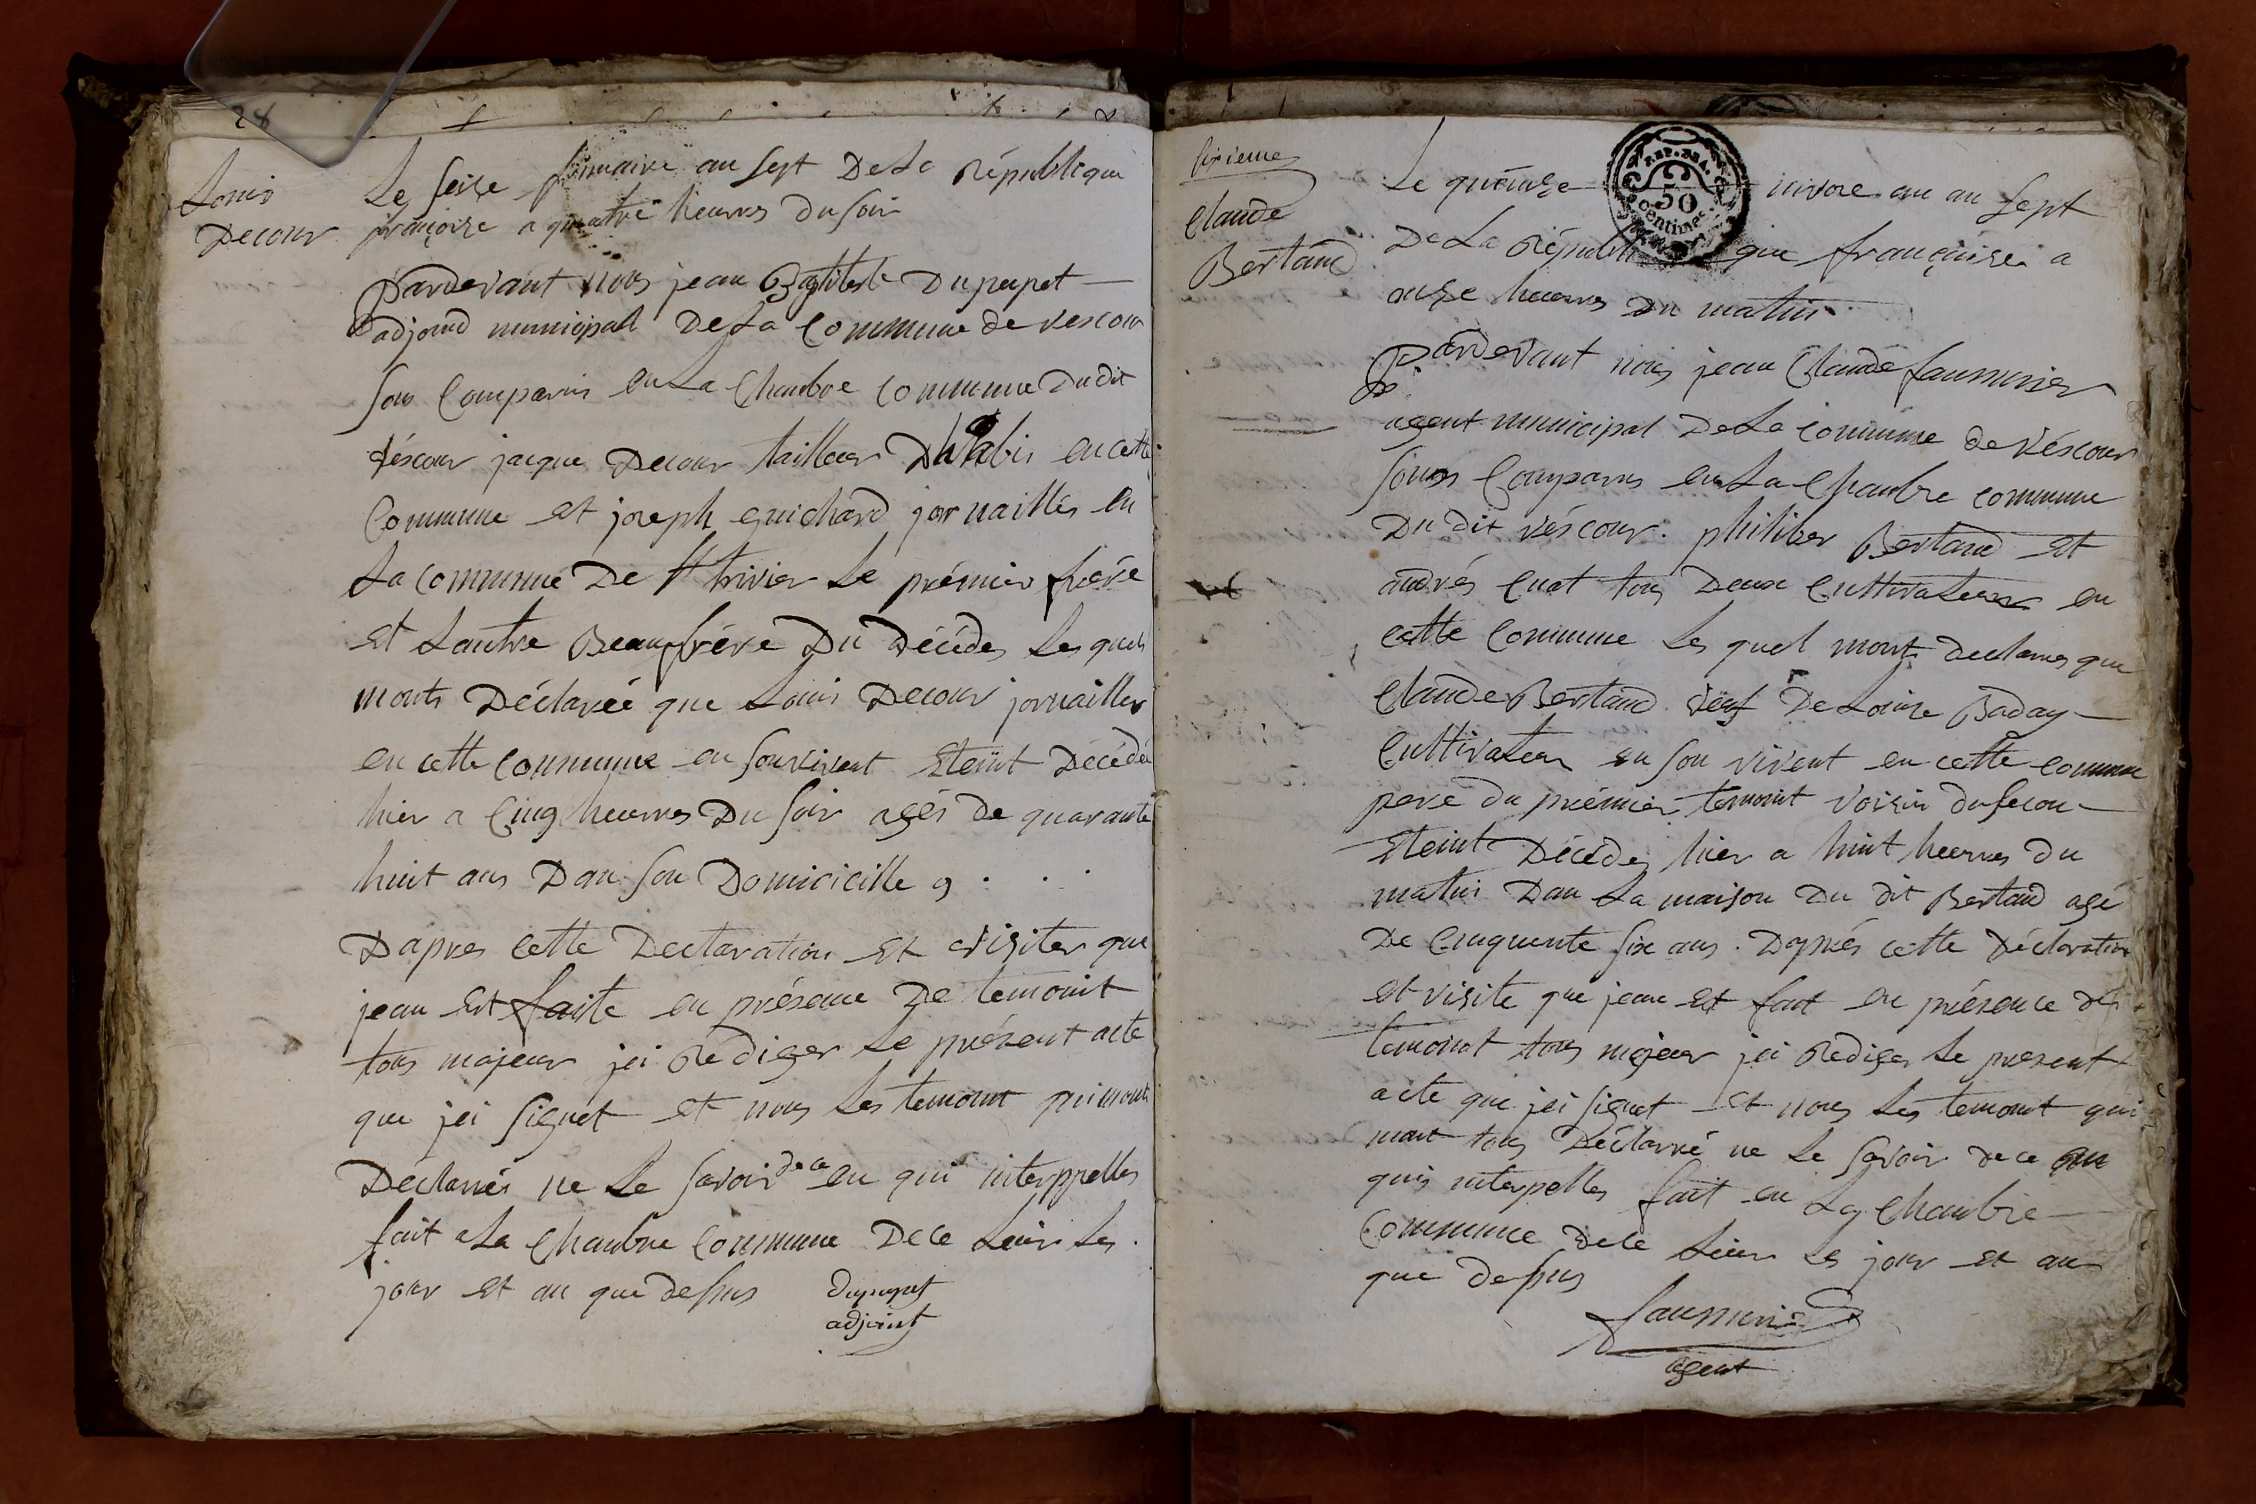 28
Louis
Decour
Le seize frimaire an sept De La République
françoise a quatre heures Du soir
Pardevant nous jean Batiste Dupupet
adjoind municipal De La Commune de vescour
son Comparus en La Chambre Commune Du dit
véscour jacque Decour tailleur Dhabis en cette
Commune et joseph guichard jornaillés en
La commune De st trivier Le prémier frére
et Lautre Beaufrére Du Décédes Les quels
monts Déclareé que Louis Decour jornailler
en cette commune en sonvivent Eteint Décédé
hier a Cinq heures Du soir agés de quarante
huit ans Dan son Domicicille
Dapres cette Declaration Et visiter que
jean est faite en présence De temoint
tous majeur jei Rédiger Le présent acte
que jei signet et nous Les temoint qui monts
Déclarrés ne Le savoir de ce en qui interppelles
fait a La Chambre Commune De ce Lieur Les
jour et an que dessus
Dupupet
adjoint
sixieme
Claude
Bertand
REP. FRA.
50
centimes
Le quinze nivose an sept
De La République françaises a
onze heures Du matin
Pardevant nous jean Claude saunurier
agent municipal De La commune de véscour
sonns Comparus en La Chambre commune
Du dit véscour. philiber Bertand et
andrés Cuat tous Deux Cultivateur en
cette commune Les quel monts declares que
Claude Bertand veuf De Louise Baday
Cultivateur en son vivent en cette commune
pere du prémier temoint voisin du secon
Eteint Décédes hier a huit heures du
matin Dan La maison Du dit Bertand agé
De Cinquente six ans. Daprés cette Déclaration
et visite que jean est fait en présence des
temoint tous majeur jei Rediger Le present
acte que jei signet et nous Les temoint qui
mont tous Déclarré ne Le savoir de ce en
quis interpelles fait en La Chambre
Commune de ce Lieur Les jour et an
que dessus
agent